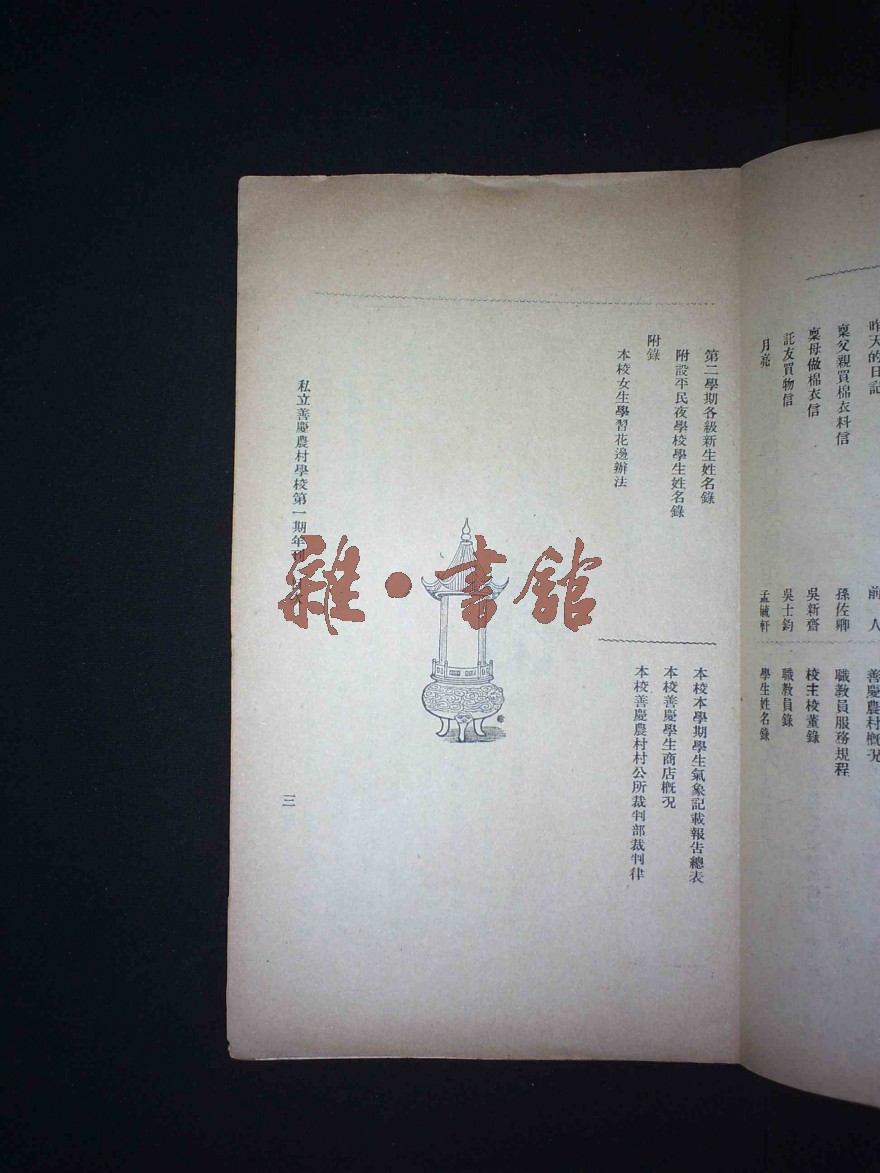 昨天的日記
前 人
稟父親買棉衣料信
孫佐卿
稟母做棉衣信
吳新齋
託友買物信
吳士鈞
月亮
孟毓軒
善慶農村概况
職教員服務規程
校主校董錄
職教員錄
學生姓名錄
第二學期各級新生姓名錄
附設平民夜學校學生姓名錄
附錄
本校女生學習花邊辦法
本校本學期學生氣象記載報告總表
本校善慶學生商店概况
本校善慶農村村公所裁判部裁判律
私立善慶農村學校第一期年刊
三
雜·書館